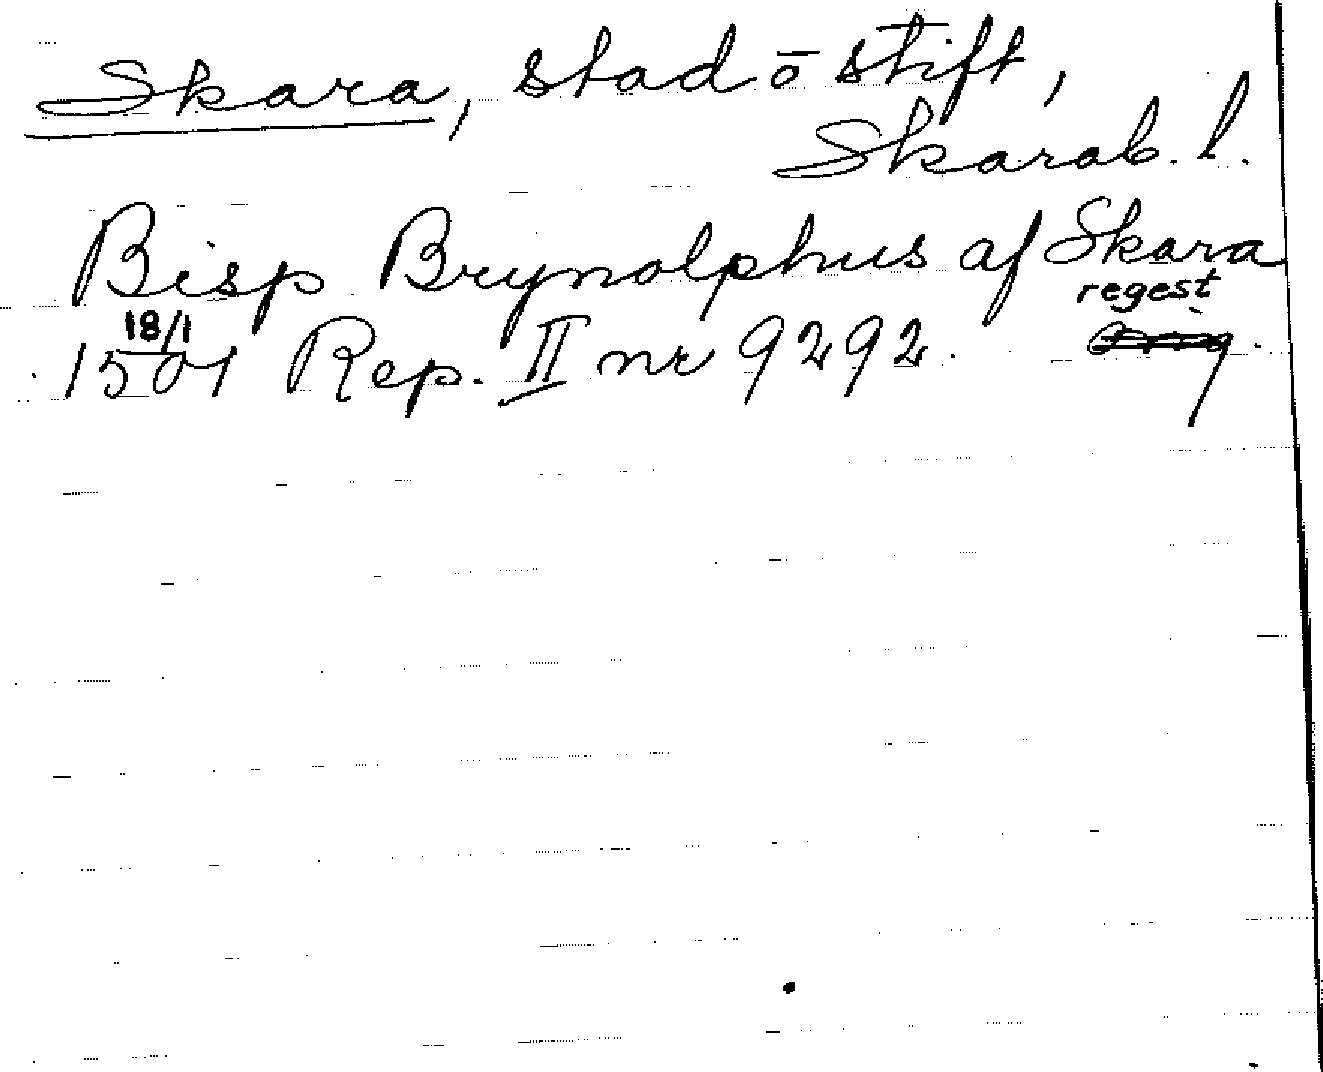 Skara, stad ō stift,
Skarab. l.
Bisp Brynolphus af Skara
regest
18/1
1501 Rep. II nr 9292.